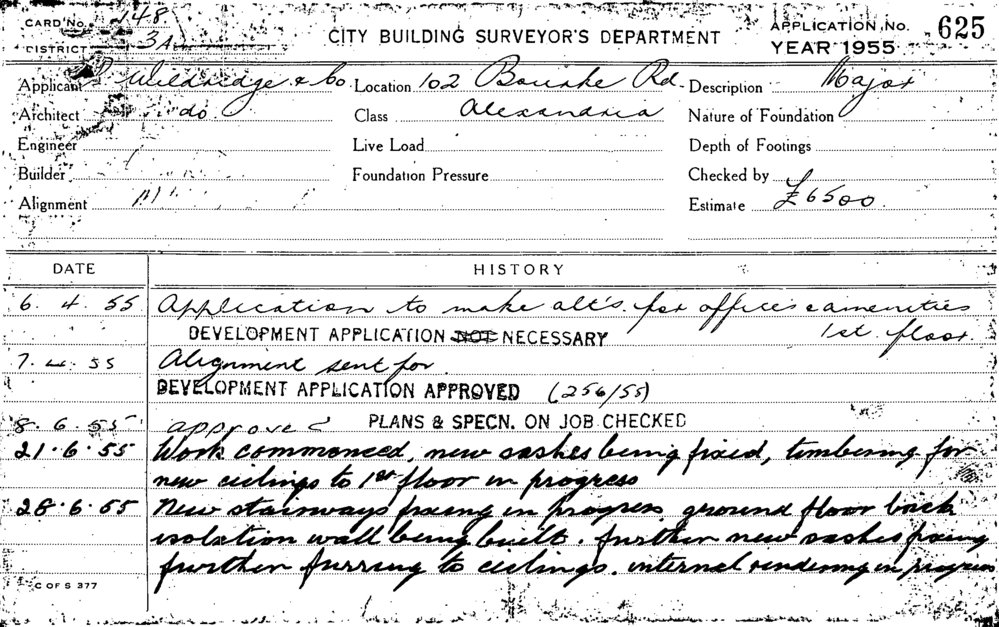 CARD No. 148
DISTRICT 3A
CITY BUILDING SURVEYOR'S DEPARTMENT
APPLICATION No. 625
YEAR 1955
Applicant Wildridge & Co. Location 102 Bourke Rd. Description Major
Architect do Class Alexandria Nature of Foundation
Engineer Live Load Depth of Footings
Builder Foundation Pressure Checked by
Alignment Estimate £6500
DATE HISTORY
6. 4. 55 Application to make alt's. for offices & amenities
DEVELOPMENT APPLICATION NOT NECESSARY 1st. floor.
7. 4. 55 Alignment sent for.
DEVELOPMENT APPLICATION APPROVED (256/55)
8. 6. 55 approved PLANS & SPECN. ON JOB CHECKED
21.6.55 Work commenced, new sashes being fixed, timbering for
new ceilings to 1st floor in progress
28.6.55 New stairways fixing in progress ground floor back
isolation wall being built. further new sashes fixing
further furring to ceilings. internal rendering in progress
C OF S 377